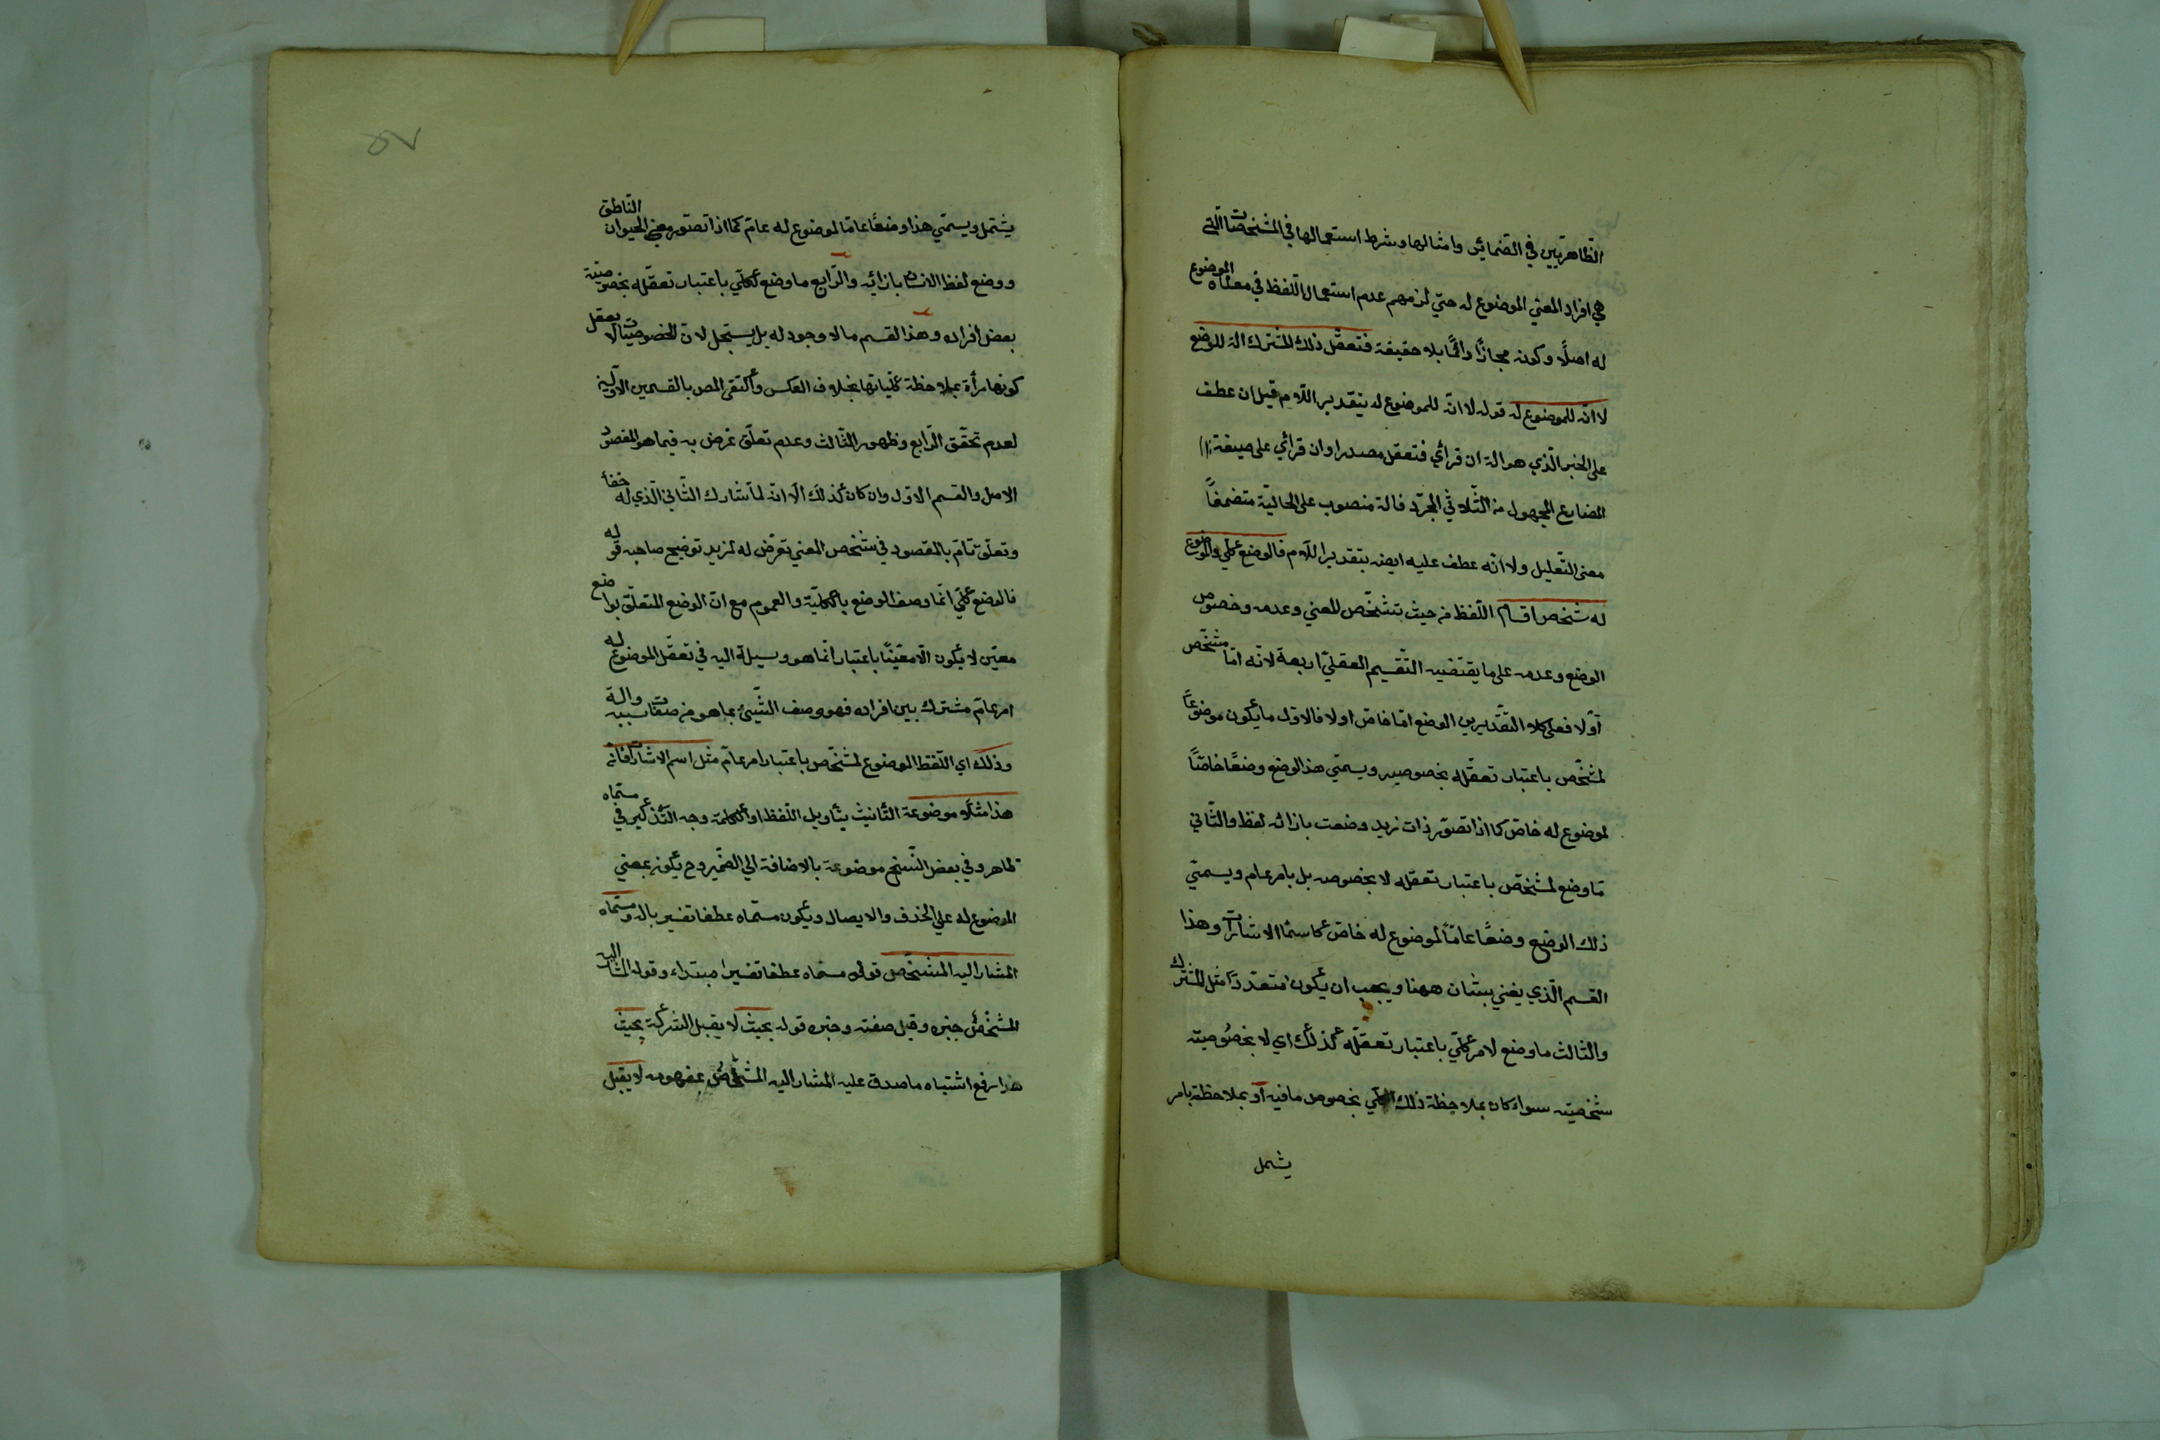 الظاهريين في الضمائر وامثالها وشرط استعمالها في المشخصات التي
هي افراد المعني الموضوع له حتي لزمهم عدم استعمال اللفظ في معناه الموضوع
له اصلًا وكونه مجازًا دائمًا بلا حقيقة فتعقّل ذلك المشترك الة للوضع
لا انّه للموضوع له قوله لا انّه للموضوع له بتقدير اللام قيل ان عطف
علي الخبر الّذي هو الة ان قرائي فتعقل مصدرا وان قرائي علي صيغة
المضارع المجهول من الثّلاثي المجرّد فالة منصوب علي الحاليّة متضمنًا
معني التّعليل ولا انّه عطف عليه ايضه بتقدير اللام فالوضع كلي والموضوع
له شخص اقسام اللّفظ من حيث تشخّص المعني وعدمه وخصوص
الوضع وعدمه علي ما يقتضيه التّقسيم العقليّ اربعة لانّه امّا مشخّص
أولا فعلي كلا التّقديرين الوضع امّا خاصّ اولا فالاول ما يكون موضوعًا
لمشخّص باعتبار تعقّله بخصوصه ويسمّي هذا الوضع وضعًا خاصًّا
لموضوع له خاصّ كما اذا تصوّر ذات زيد وضعت بازائه لفظ والثّاني
ما وضع لمشخّص باعتبار تعقّله لا بخصوصه بل بامر عام ويسمّي
ذلك الوضع وضعًا عامًّا لموضوع له خاصّ كاسما الاشارات وهذا
القسم الّذي يعني ههنا ويجب ان يكون متعدّدًا مثل المشترك
والثالث ما وضع لامر كلّي باعتبار تعقّله كذلك اي لا بخصوصيته
شخصيته سواء كان بملاحظة ذلك الكلّي بخصوص ما فيه أو بملاحظة بامر
يشمل
يشتمل ويسمّي هذا وضعًا عامًّا لموضوع له عامّ كما اذا تصوّر معني الحيوان النّاطق
ووضع لفظ الانسان بازائه والرّابع ما وضع لكلّي باعتبار تعقّله بخصوصيّة
بعض افراده وهذا القسم ما لا وجود له بل يستحيل لانّ الخصوصيّات لا يعقل
كونها مرأة بملاحظة كلّياتها بخلاف العكس وأكتفي المص بالقسمين الاوّلين
لعدم تحقّق الرّابع وظهور الثّالث وعدم تعلّق غرض به فيما هو المقصود
الاصل والقسم الاوّل وان كان كذلك الّا انّه لما شارك الثّاني الّذي له خفأ
وتعلّق تامّ بالمقصود في تشخص المعني تعرّض له لمزيد توضيح صاحبه قوله
فالوضع كلّي انّما وصف الوضع بالكليّة والعموم مع انّ الوضع المتعلّق بواضع
معيّن لا يكون الّا معيّنًا باعتبار انّما هو وسيلة اليه في تعقّل الموضوع له
امر عامّ مشترك بين افراده فهو وصف الشّيئ بما هو من صفات سببه والة
وذلك اي اللّفظ الموضوع لمشخّص باعتبار امر عامّ مثل اسم الاشارة فانّ
هذا مثلًا موضوعة التّأنيث بتأويل اللّفظ او الكلمة وجه التّذكير في مسمّاه
ظاهر وفي بعض النّسخ موضوعة بالاضافة الي الضّمير وح يكون بمعني
الموضوع له علي الحذف والايصال ويكون مسمّاه عطفا تفسير باله ومسمّاه
المشار اليه المشخّص قوله مسماه عطفا تفسيرا مبتداء وقوله المشار اليه
المشخّص خبره وقيل صفته وخبره قوله بحيث لا يقبل الشركة بحيث
هذا رفع اشتباه ما صدق عليه المشار اليه المشخّص بمفهومه لا يقبل